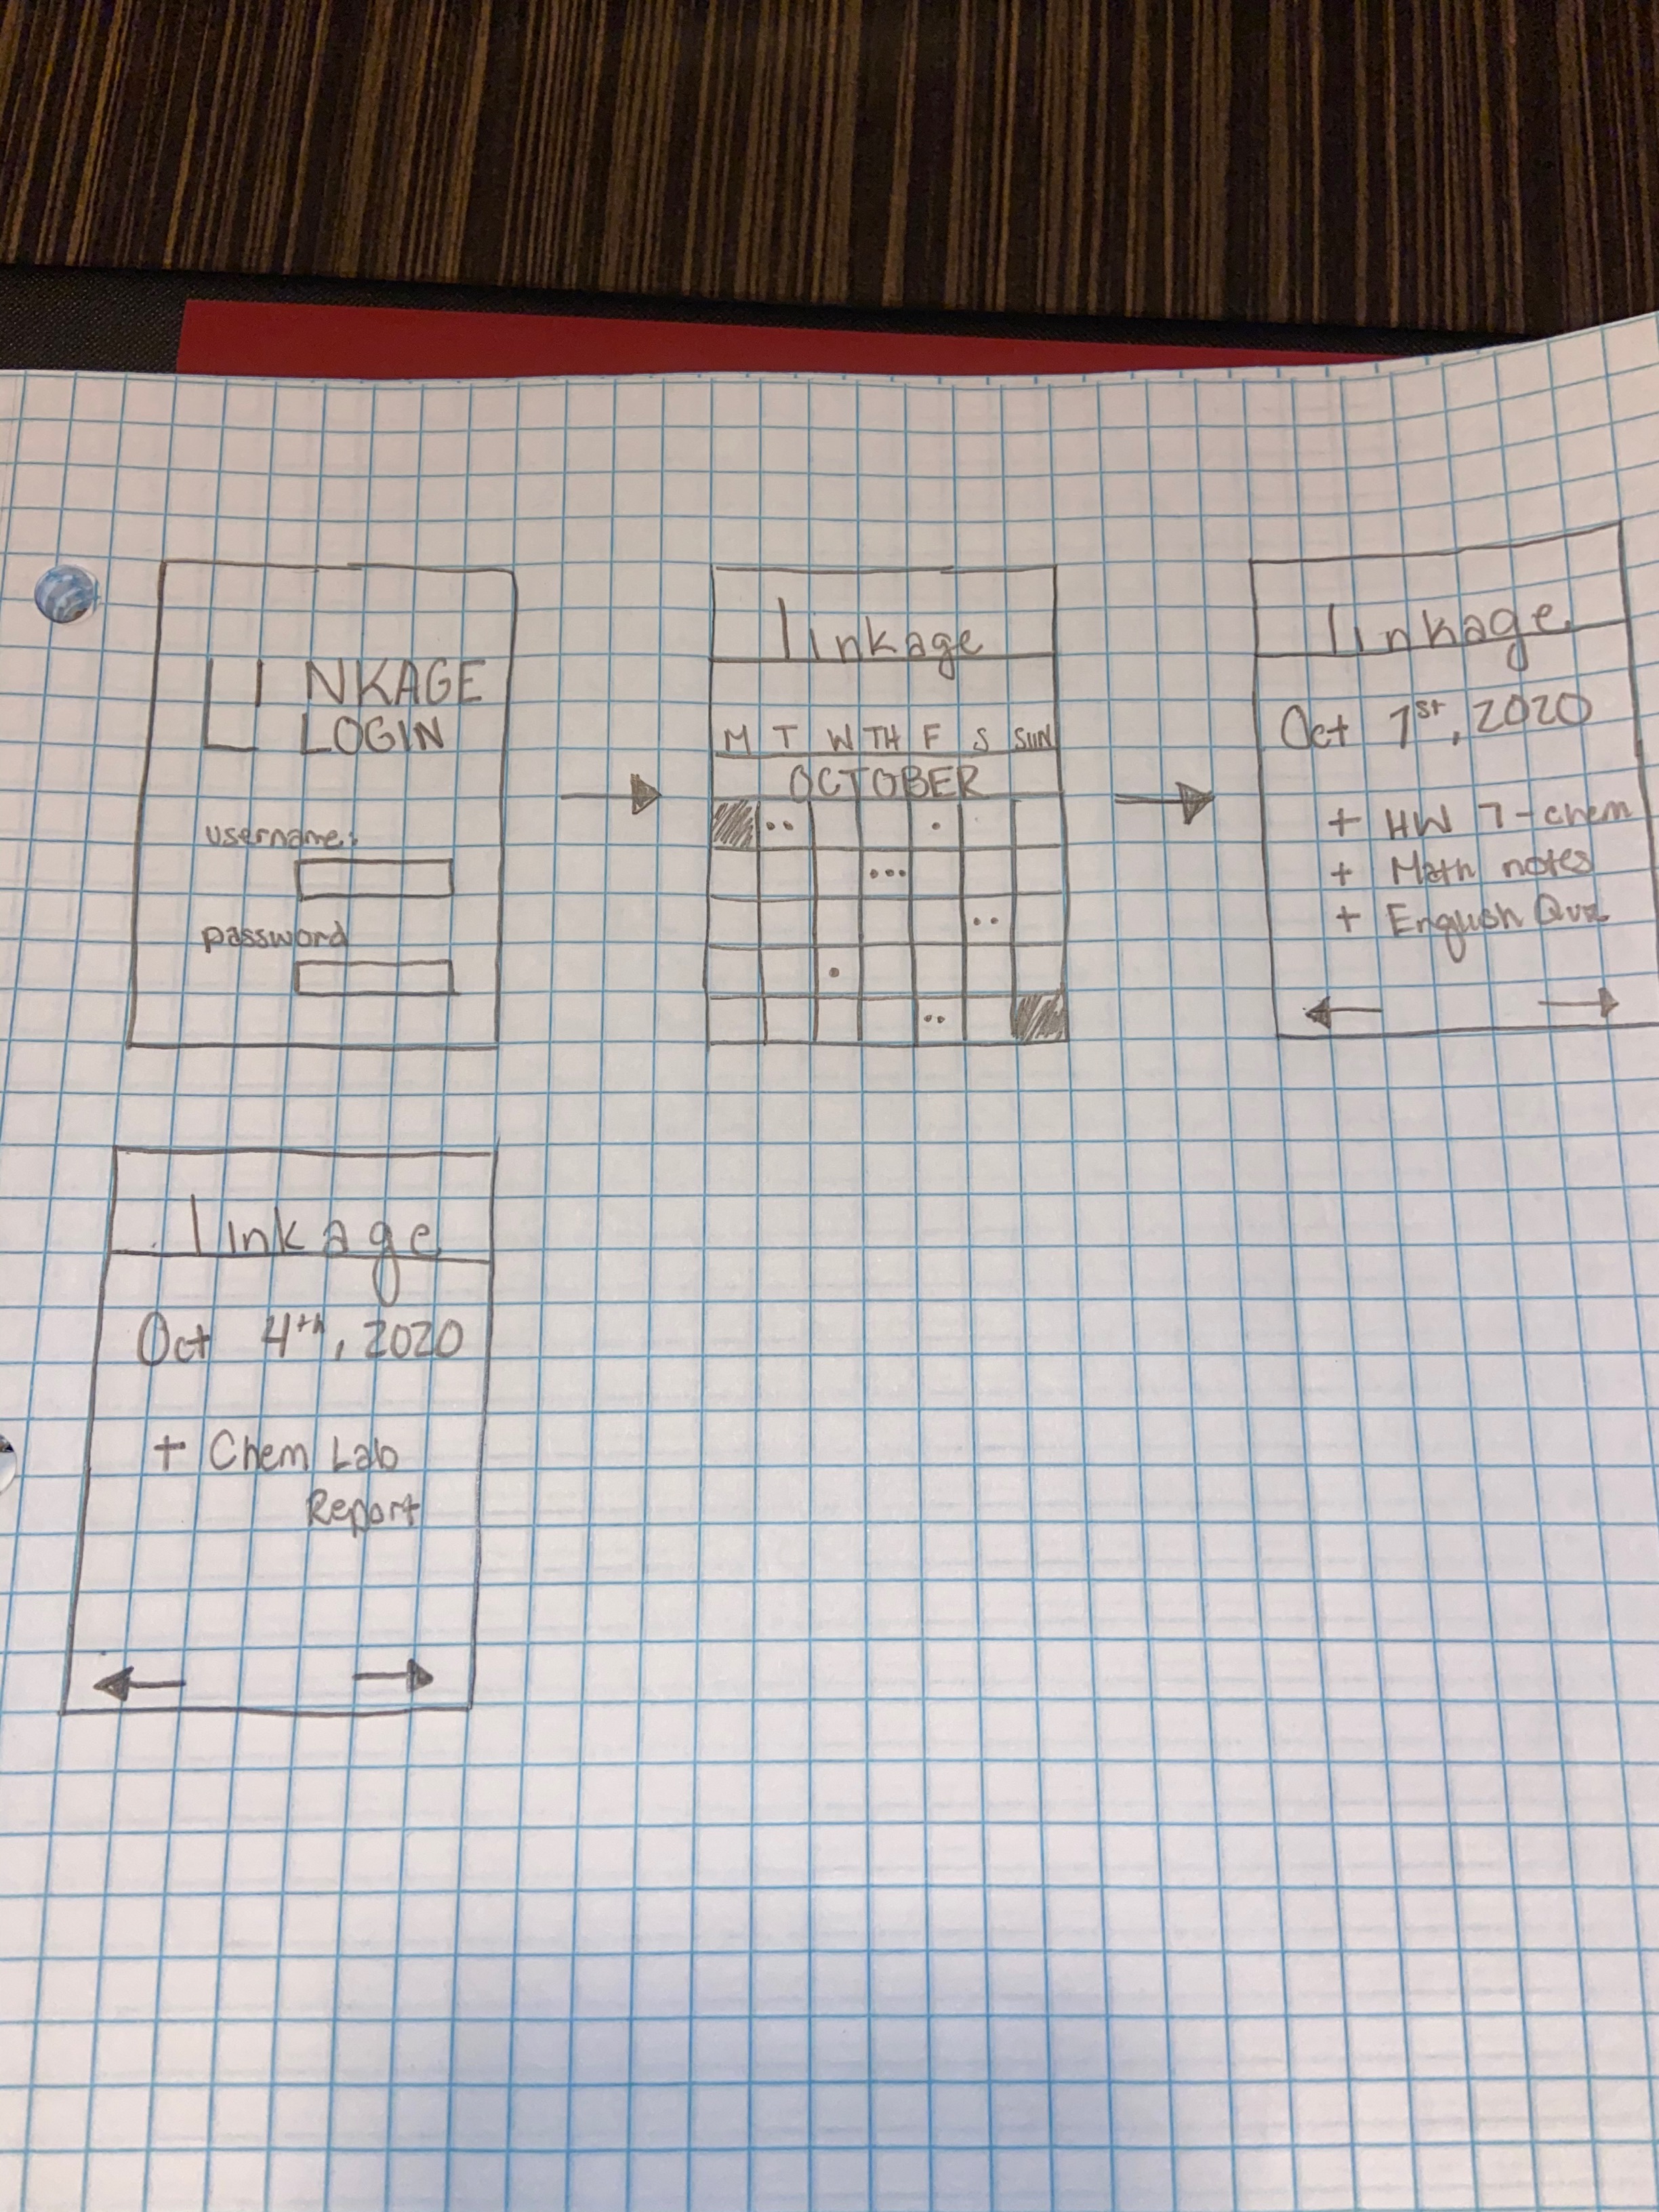 LINKAGE
LOGIN
username:
password
linkage
M T W TH F S SUN
OCTOBER
linkage
Oct 1st, 2020
+ HW 7-chem
+ Math notes
+ English Quiz
linkage
Oct 4th, 2020
+ Chem Lab
Report